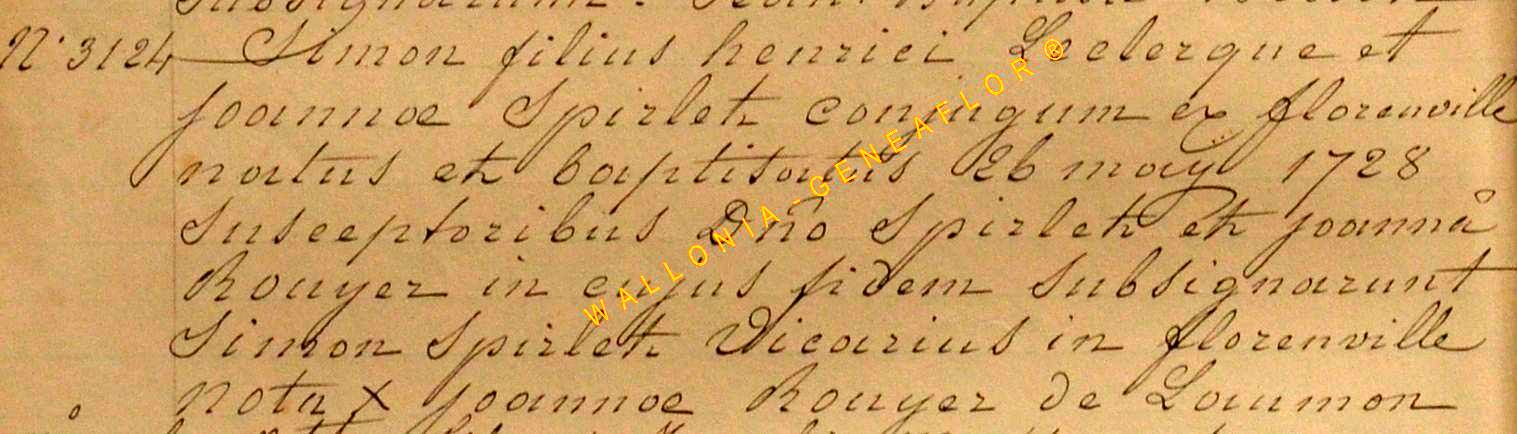 subsignarunt. Jean-Baptiste
N° 3124 Simon filius henrici Leclerque et
joannae Spirlet conjugum ex florenville
natus et baptisatus 26 may 1728
Susceptoribus Dño Spirlet et joannâ
Rouyer in cujus fidem subsignarunt
Simon Spirlet Vicarius in florenville
nota X joannae Rouyer de Laumon
WALLONIA-GENEAFLOR®